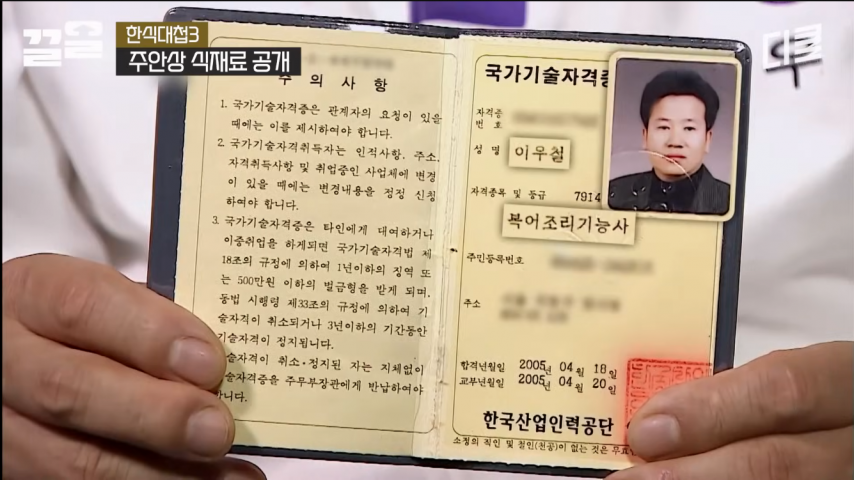 끌올
한식대첩3
주안상 식재료 공개
디글
주 의 사 항
1. 국가기술자격증은 관계자의 요청이 있을
때에는 이를 제시하여야 합니다.
2. 국가기술자격취득자는 인적사항, 주소,
자격취득사항 및 취업중인 사업체에 변경
이 있을 때에는 변경내용을 정정 신청
하여야 합니다.
3. 국가기술자격증은 타인에게 대여하거나
이중취업을 하게되면 국가기술자격법 제
18조의 규정에 의하여 1년이하의 징역 또
는 500만원 이하의 벌금형을 받게 되며,
동법 시행령 제33조의 규정에 의하여
기술자격이 취소되거나 3년이하의 기간동안
기술자격이 정지됩니다.
술자격이 취소·정지된 자는 지체없이
술자격증을 주무부장관에게 반납하여야
합니다.
국가기술자격증
자격증
번 호
성 명 이우철
자격종목 및 등급 7914
복어조리기능사
주민등록번호
주소
합격년월일 2005년 04 월 18일
교부년월일 2005년 04 월 20일
한국산업인력공단
소정의 직인 및 철인(천공)이 없는 것은 무효